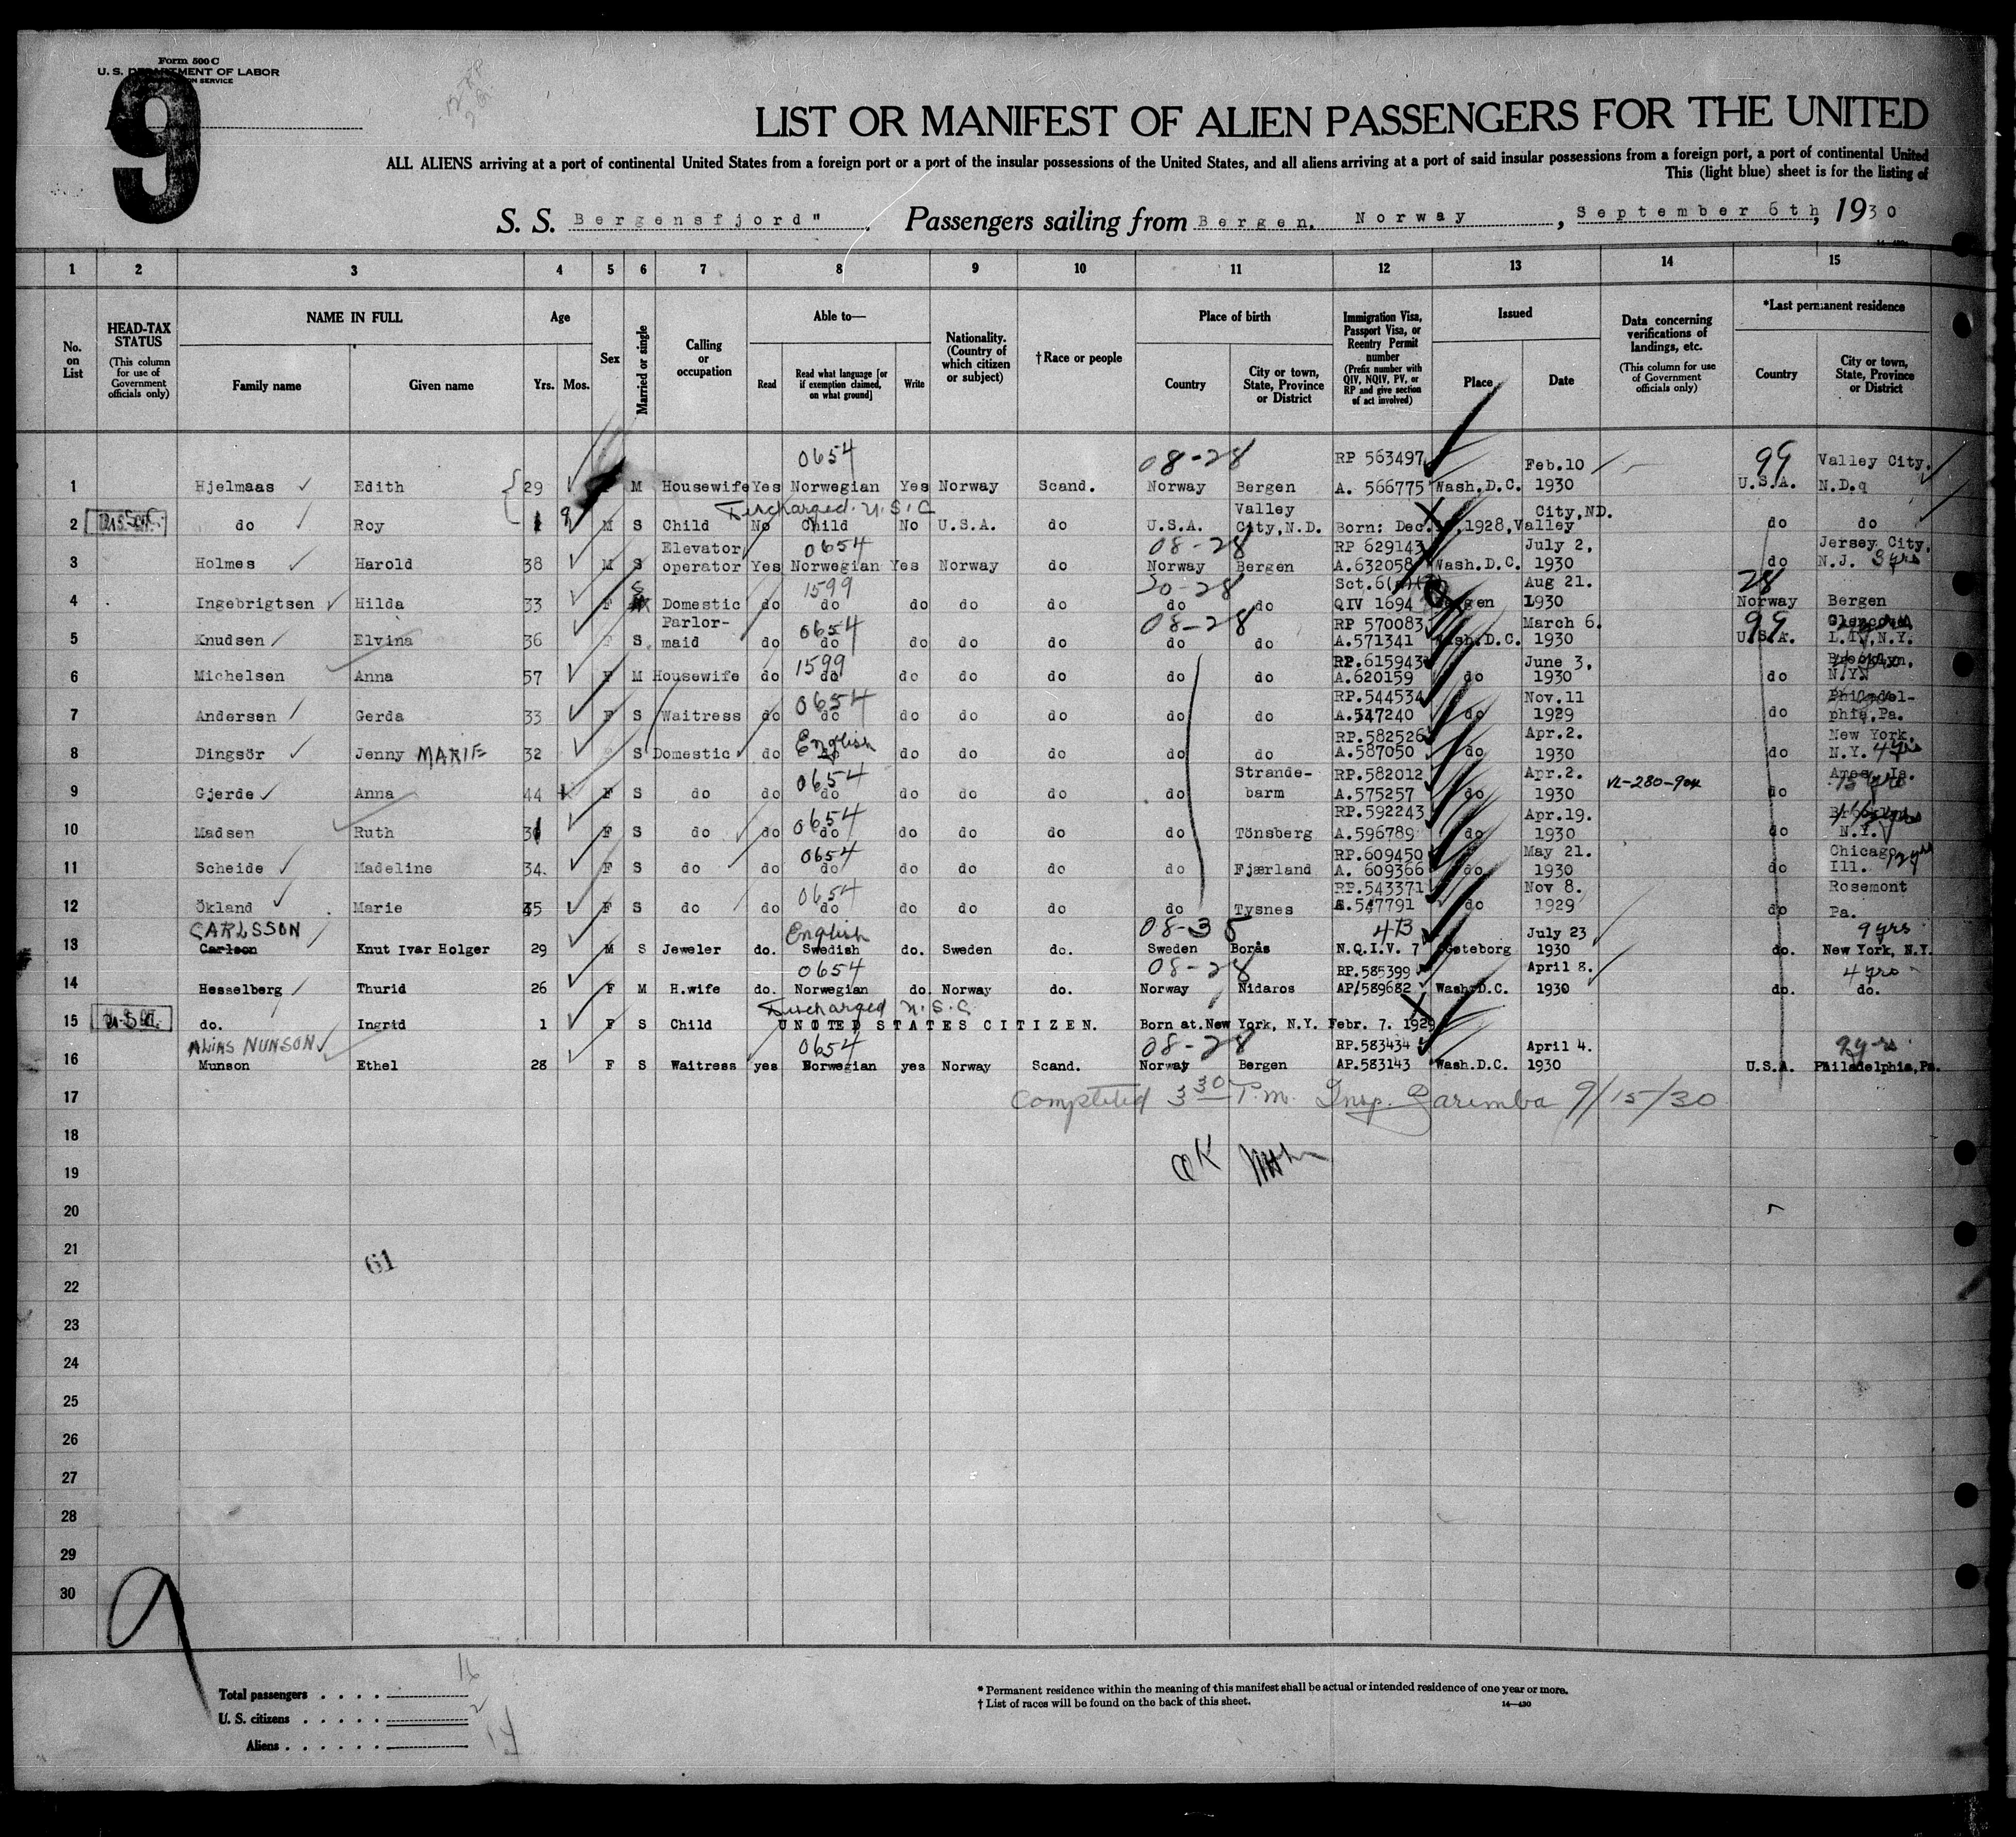 Form 500 C
U. S. DEPARTMENT OF LABOR
SERVICE
9
LIST OR MANIFEST OF ALIEN PASSENGERS FOR THE UNITED
ALL ALIENS arriving at a port of continental United States from a foreign port or a port of the insular possessions of the United States, and all aliens arriving at a port of said insular possessions from a foreign port, a port of continental United
This (light blue) sheet is for the listing of
S. S. Bergensfjord" Passengers sailing from Bergen. Norway, September 6th, 1930
1 2 3 4 5 6 7 8 9 10 11 12 13 14 15
No. on List
HEAD-TAX STATUS (This column for use of Government officials only)
NAME IN FULL Family name Given name
Age Yrs. Mos.
Sex
Married or single
Calling or occupation
Able to— Read Read what language [or if exemption claimed, on what ground] Write
Nationality. (Country of which citizen or subject)
†Race or people
Place of birth Country City or town, State, Province or District
Immigration Visa, Passport Visa, or Reentry Permit number (Prefix number with QIV, NQIV, PV, or RP and give section of act involved)
Issued Place Date
Data concerning verifications of landings, etc. (This column for use of Government officials only)
*Last permanent residence Country City or town, State, Province or District
0654 08-28 RP 563497 Feb.10 99 Valley City,
1 Hjelmaas Edith 29 M Housewife Yes Norwegian Yes Norway Scand. Norway Bergen A. 566775 Wash.D.C. 1930 U.S.A. N.D.
Discharged U.S.C Valley City,ND.
2 do Roy 1 9 M S Child No Child No U.S.A. do U.S.A. City,N.D. Born: Dec. 1928, Valley do do
Elevator 0654 08-28 RP 629143 July 2, Jersey City,
3 Holmes Harold 38 M S operator Yes Norwegian Yes Norway do Norway Bergen A.632058 Wash.D.C. 1930 do N.J. 3 yrs
S 1599 30-28 Sct.6 Aug 21. 28
4 Ingebrigtsen Hilda 33 F Domestic do do do do do do do QIV 1694 Bergen 1930 Norway Bergen
Parlor- 0654 08-28 RP 570083 March 6. 99
5 Knudsen Elvina 36 F S maid do do do do do do do A.571341 Wash.D.C. 1930 U.S.A. L.I., N.Y.
1599 RP.615943 June 3, Brooklyn.
6 Michelsen Anna 57 F M Housewife do do do do do do do A.620159 do 1930 do N.Y.
0654 RP.544534 Nov.11 Philadel-
7 Andersen Gerda 33 F S Waitress do do do do do do do A.547240 do 1929 do phia,Pa.
English RP.582526 Apr.2. New York.
8 Dingsör Jenny MARIE 32 S Domestic do do do do do do do A.587050 do 1930 do N.Y. 4 yrs
0654 Strande- RP.582012 Apr.2. Ames, Ia.
9 Gjerde Anna 44 F S do do do do do do do barm A.575257 do 1930 VL-280-904 do 15 yrs
0654 RP.592243 Apr.19.
10 Madsen Ruth 31 F S do do do do do do do Tönsberg A.596789 do 1930 do N.Y.
0654 RP.609450 May 21. Chicago
11 Scheide Madeline 34. F S do do do do do do do Fjærland A. 609366 do 1930 do Ill.
0654 RP.543371 Nov 8. Rosemont
12 Ökland Marie 35 F S do do do do do do do Tysnes A.547791 do 1929 do Pa.
CARLSSON English 08-35 4B July 23 9 yrs
13 Carlson Knut Ivar Holger 29 M S Jeweler do. Swedish do. Sweden do. Sweden Borås N.Q.I.V. 7 Goteborg 1930 do. New York, N.Y.
0654 08-28 RP.585399 April 8. 4 yrs
14 Hesselberg Thurid 26 F M H.wife do. Norwegian do. Norway do. Norway Nidaros AP/589682 Wash.D.C. 1930 do. do.
Discharged U.S.C
15 do. Ingrid 1 F S Child UNITED STATES CITIZEN. Born at.New York, N.Y. Febr. 7. 1929
ALIAS NUNSON 0654 08-28 RP.583434 April 4. 9 yrs
16 Munson Ethel 28 F S Waitress yes Norwegian yes Norway Scand. Norway Bergen AP.583143 Wash.D.C. 1930 U.S.A. Philadelphia,Pa.
17 Completed 3 30 P.m. Insp. Zarimba 9/15/30
18
19 OK
20
21
61
22
23
24
25
26
27
28
29
30
9
Total passengers 16
U. S. citizens 2
Aliens 14
* Permanent residence within the meaning of this manifest shall be actual or intended residence of one year or more.
† List of races will be found on the back of this sheet. 14—430